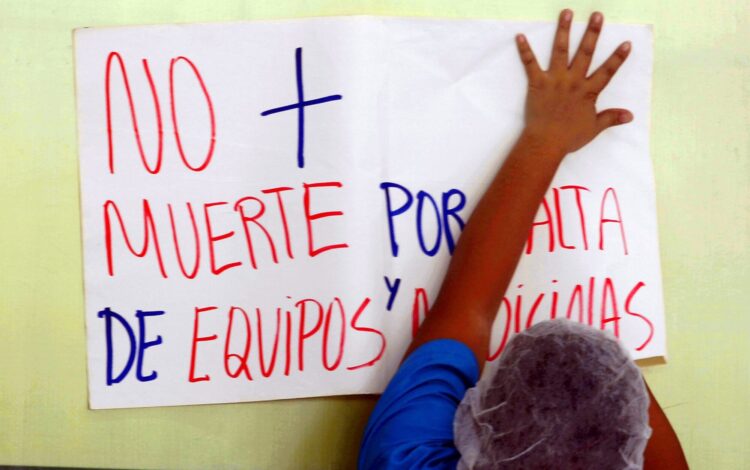 NO +
MUERTE POR FALTA
DE EQUIPOS Y MEDICINAS